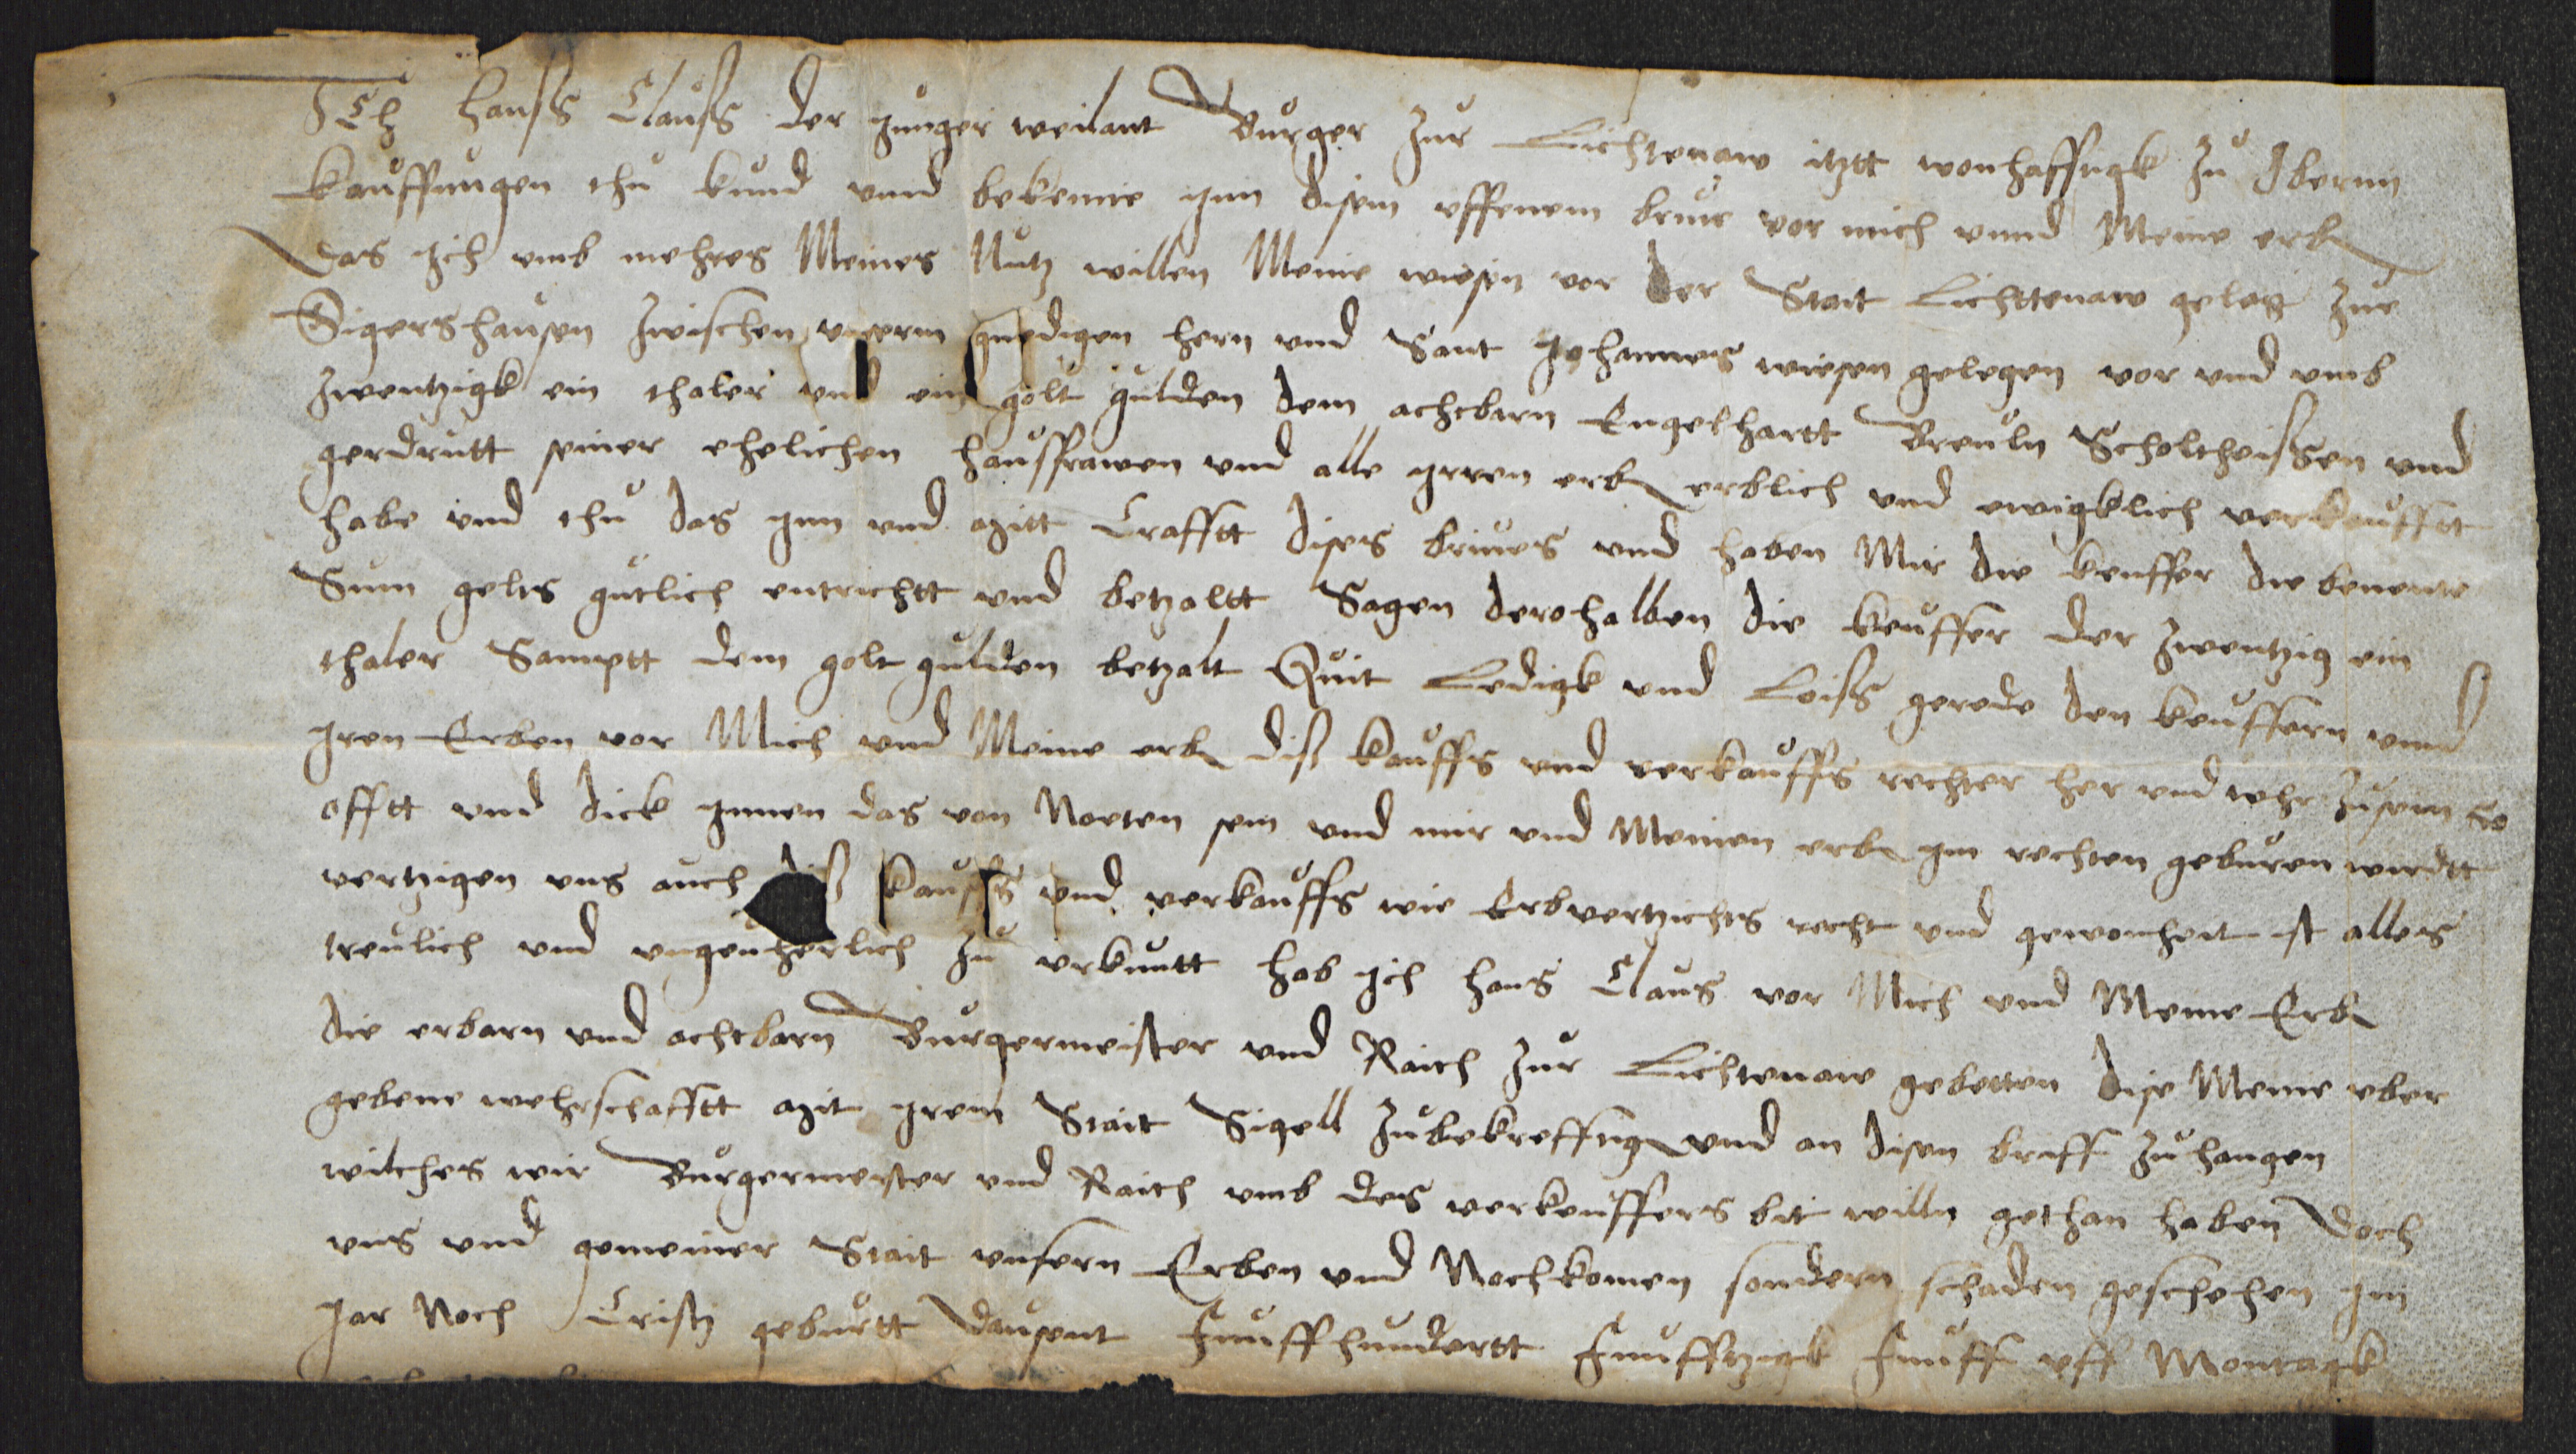 ICh Hanß Clauß der Junger weilant Burger zur Lichtenaw itztt wonhafftigk zu Obernn
Kauffungen thu kund vnd bekenne Inn disem offenem brive vor mich vnnd Meine erb
das Ich vmb mehres Meines Nutz willen Meine wiesen vor der Stait Lichttenaw gelegen zue
Sigershausen zwischen vnserm gnedigen hern vnd Sant Johannes wiesen gelegen vor vnd vmb
zwentzigk ein thaler vnd ein golt gulden dem achtbarn Engelhartt Breuln Scholtheissen vnd
gerdrutt seiner ehelichen hausfrawen vnd alle Jrren erb erblich vnd ewigklich verkaufftt
habe vnd thu das Inn vnd mitt Crafftt dises brives vnd haben Mir die keuffer die benente
Sum gelts gutlich entrichtt vnd betzaltt Sagen derohalben die keuffer der zwentzig ein
thaler Samptt dem golt gulden betzalt Quit Ledigk vnd Loiß gerede den keuffern vnnd
Iren Erben vor Mich vnd Meine erb diß kauffs vnd verkauffs rechter her vnd wehr zusein so
offtt vnd dick Innen das von Noeten sein vnd mir vnd Meinen erb Im rechten geburen wirdtt
vertzigen vns auch diß kauffs vnd verkauffs wie Erbvertzichts recht vnd gewonheit ist alles
treulich vnd vngeuherlich zu vrkuntt hab Ich Hans Claus vor Mich vnd Meine Erb
die erbarn vnd achtbarn Burgermeister vnd Raith zur Lichtenaw gebetten dise Meine vber
gebene wehrschafftt mit Jrem Stait Sigell zubekrefftig vnd an disen briff zuhangen
wilches wir Burgermeister vnd Raith vmb des verkeuffers bit willn gethan haben doch
vns vnd gemeiner Stait vnsern Erben vnd Nochkomen sondern schaden geschehen Im
Jar Noch Cristi geburtt dausent Funffhundertt Funfftzigk Funff vff Montagk